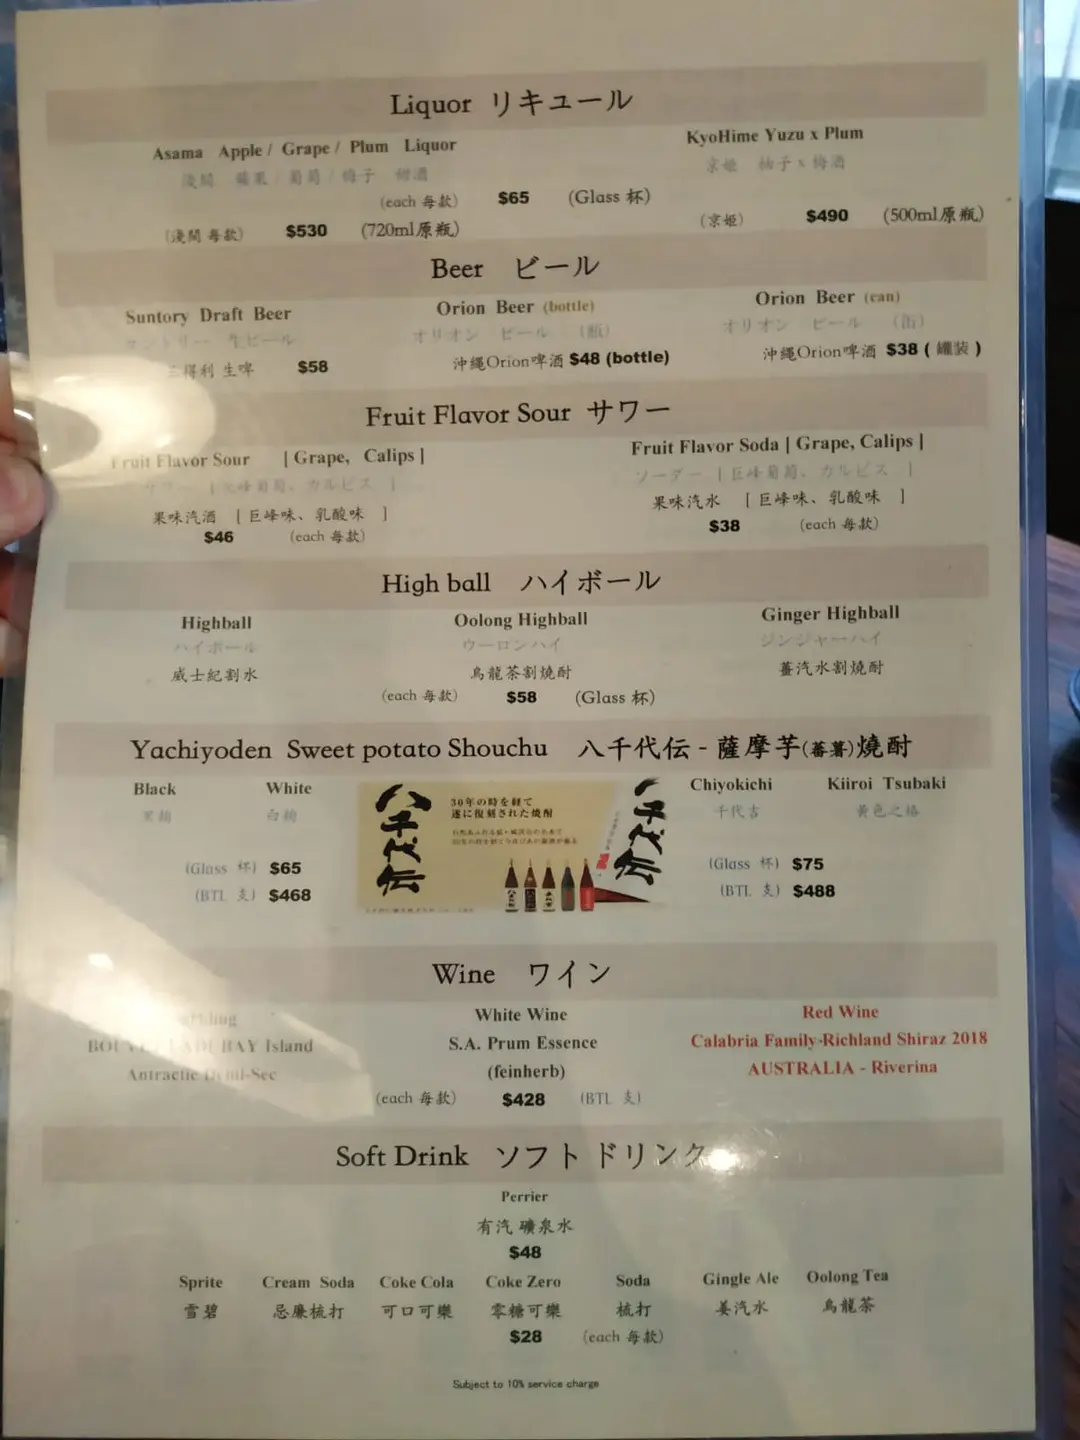 Liquor リキュール
Asama Apple / Grape / Plum Liquor
淺間 蘋果 / 葡萄 / 梅子 甜酒
(each 每款) $65 (Glass 杯)
(淺間 每款) $530 (720ml原瓶)
KyoHime Yuzu x Plum
京姫 柚子 x 梅酒
(京姫) $490 (500ml原瓶)
Beer ビール
Suntory Draft Beer
サントリー 生ビール
三得利 生啤 $58
Orion Beer (bottle)
オリオン ビール (瓶)
沖縄Orion啤酒 $48 (bottle)
Orion Beer (can)
オリオン ビール (缶)
沖縄Orion啤酒 $38 ( 罐装 )
Fruit Flavor Sour サワー
Fruit Flavor Sour | Grape, Calips |
サワー [ 巨峰葡萄、カルピス ]
果味汽酒 [ 巨峰味、乳酸味 ]
$46 (each 每款)
Fruit Flavor Soda | Grape, Calips |
ソーダー [ 巨峰葡萄、カルピス ]
果味汽水 [ 巨峰味、乳酸味 ]
$38 (each 每款)
High ball ハイボール
Highball
ハイボール
威士紀割水
Oolong Highball
ウーロンハイ
烏龍茶割燒酎
Ginger Highball
ジンジャーハイ
薑汽水割燒酎
(each 每款) $58 (Glass 杯)
Yachiyoden Sweet potato Shouchu 八千代伝 - 薩摩芋(蕃薯)燒酎
Black White
黑麹 白麹
(Glass 杯) $65
(BTL 支) $468
八千代伝
30年の時を経て
遂に復刻された焼酎
八千代伝
Chiyokichi Kiiroi Tsubaki
千代吉 黄色之椿
(Glass 杯) $75
(BTL 支) $488
Wine ワイン
BAY Island
Antractic Demi-Sec
White Wine
S.A. Prum Essence
(feinherb)
Red Wine
Calabria Family-Richland Shiraz 2018
AUSTRALIA - Riverina
(each 每款) $428 (BTL 支)
Soft Drink ソフトドリンク
Perrier
有汽 礦泉水
$48
Sprite Cream Soda Coke Cola Coke Zero Soda Gingle Ale Oolong Tea
雪碧 忌廉梳打 可口可樂 零糖可樂 梳打 姜汽水 烏龍茶
$28 (each 每款)
Subject to 10% service charge